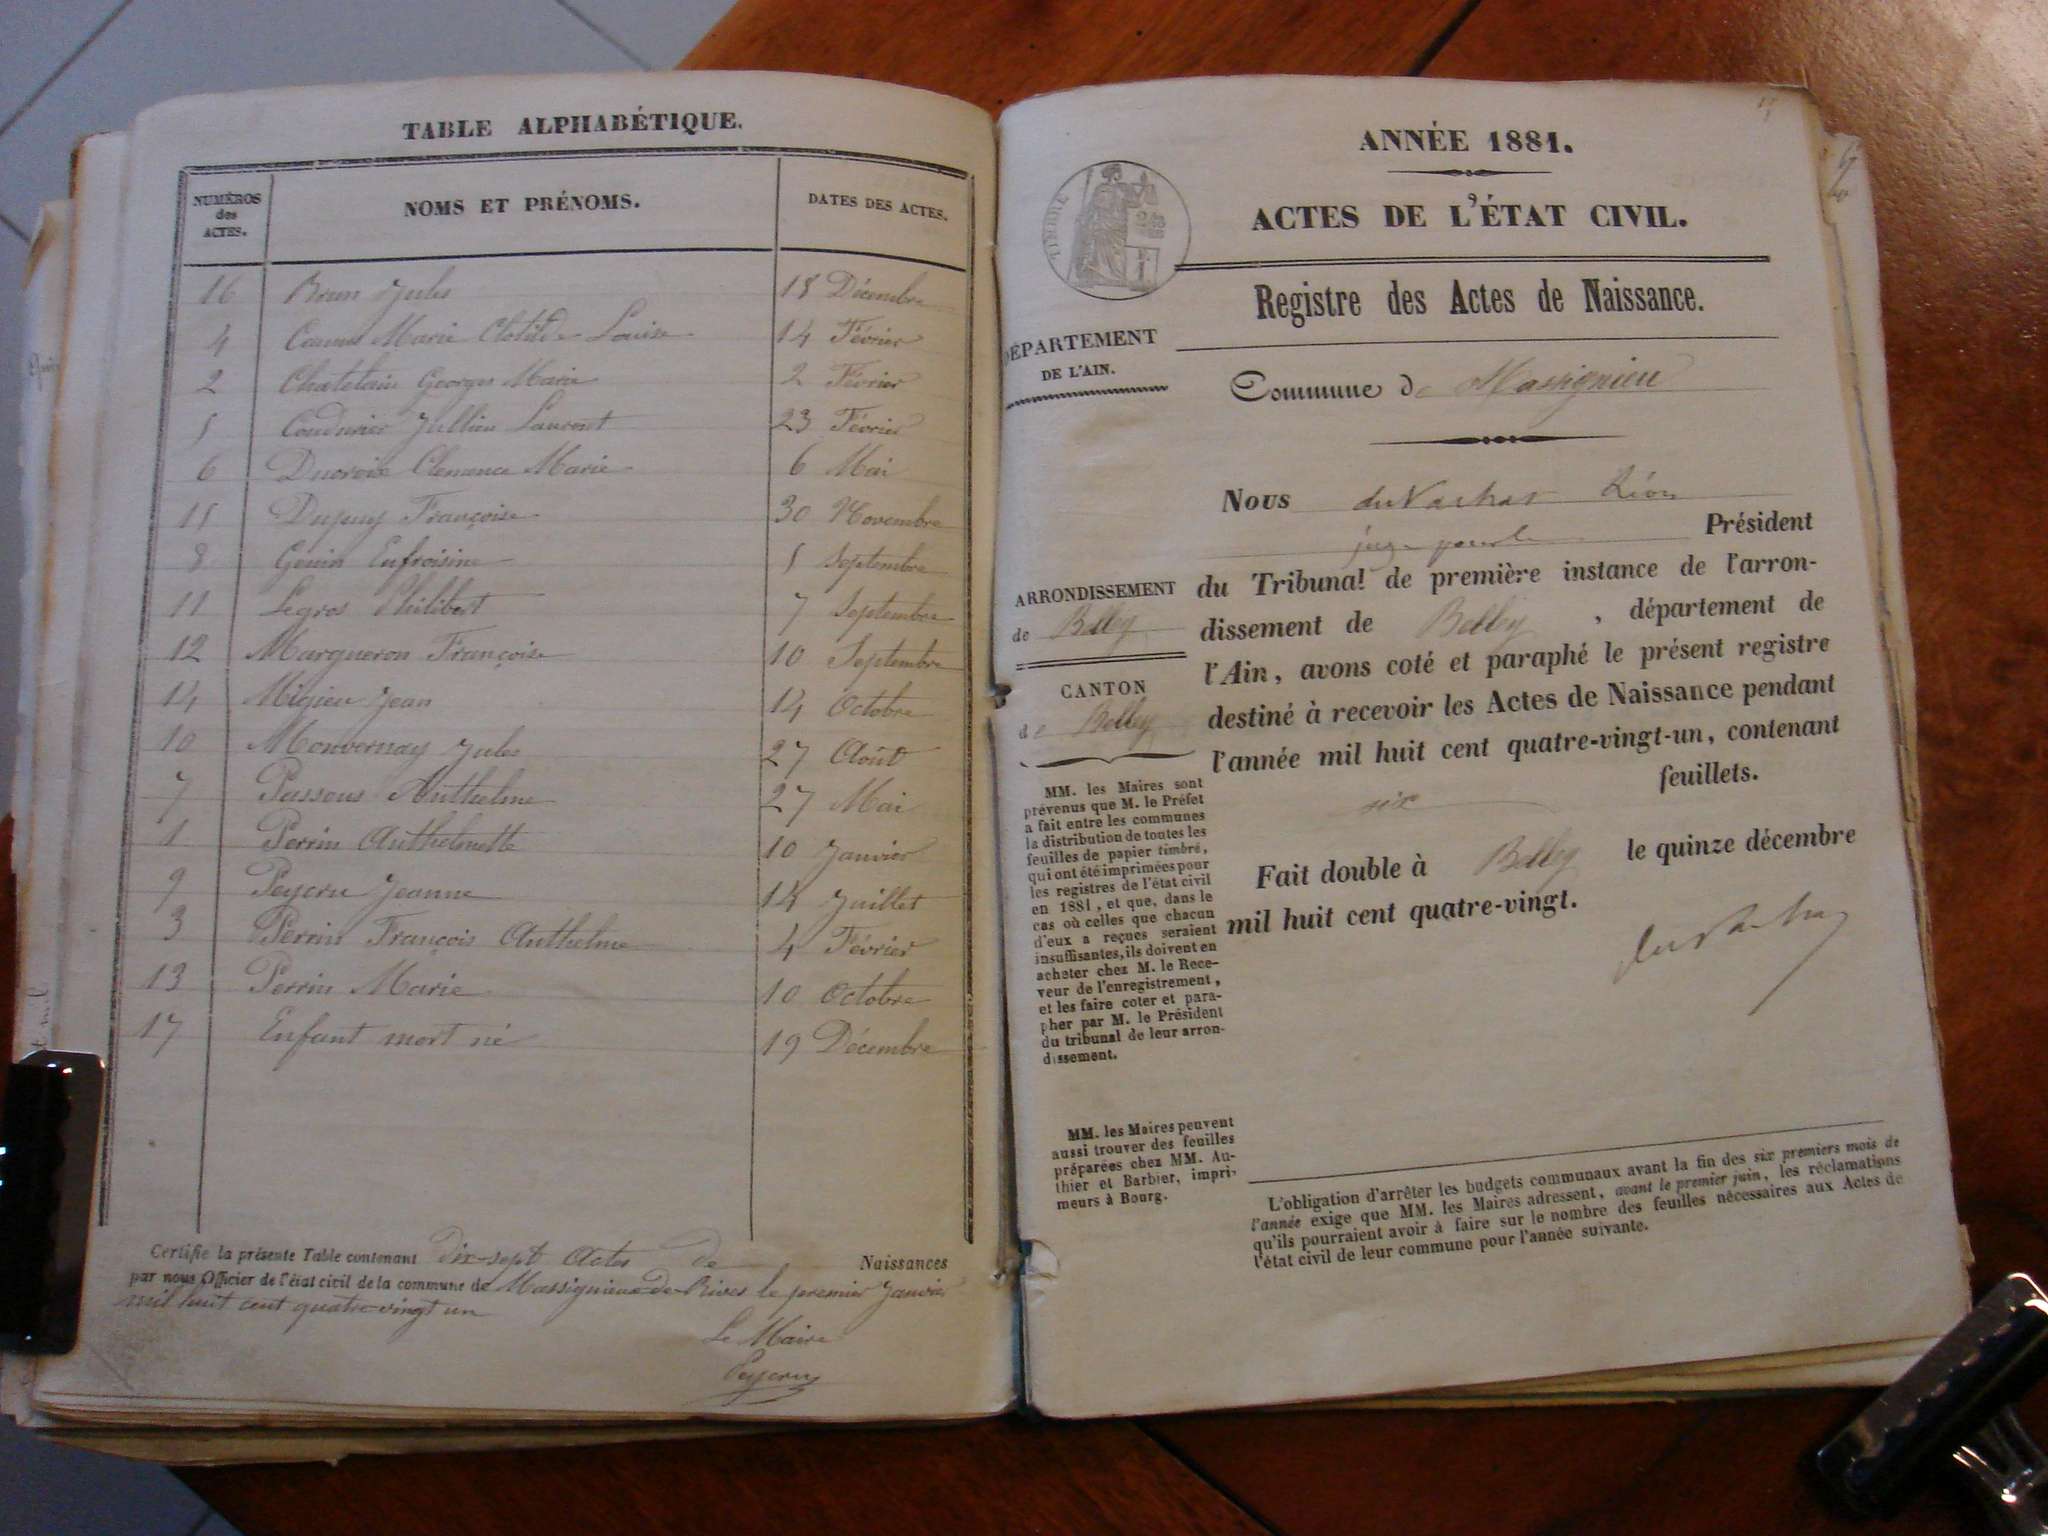 TABLE ALPHABÉTIQUE.
NUMÉROS des ACTES. NOMS ET PRÉNOMS. DATES DES ACTES.
16 Brun Jules 18 Décembre
4 Marie Clotilde Louise 14 Février
2 Chatelain Georges Marie 2 Février
5 Coudurier Jullien Laurent 23 Février
6 Ducroix Clemence Marie 6 Mai
15 Dupuy Françoise 30 Novembre
8 Genin Eufroisine 5 Septembre
11 Legros Philibert 7 Septembre
12 Margueron Françoise 10 Septembre
14 Migieu Jean 14 Octobre
10 Monvernay Jules 27 Août
7 Anthelme 27 Mai
1 Perrin Anthelmette 10 Janvier
9 Peycru Jeanne Juillet
3 Perrin François Anthelme 4 Février
13 Perrin Marie 10 Octobre
17 Enfant mort né 19 Décembre
Certifie la présente Table contenant Dix-sept Actes de Naissances
par nous Officier de l'état civil de la commune de Massignieu-de-Rives le premier Janvier
mil huit cent quatre-vingt un
Le Maire
Peycru
ANNÉE 1881.
ACTES DE L'ÉTAT CIVIL.
TIMBRE
Registre des Actes de Naissance.
DÉPARTEMENT
DE L'AIN.
Commune de Massignieu
Nous Léon
juge pour le Président
du Tribunal de première instance de l'arron-
dissement de Belley, département de
l'Ain, avons coté et paraphé le présent registre
destiné à recevoir les Actes de Naissance pendant
l'année mil huit cent quatre-vingt-un, contenant
six feuillets.
Fait double à Belley le quinze décembre
mil huit cent quatre-vingt.
ARRONDISSEMENT
de Belley
CANTON
de Belley
MM. les Maires sont
prévenus que M. le Préfet
a fait entre les communes
la distribution de toutes les
feuilles de papier timbré,
qui ont été imprimées pour
les registres de l'état civil
en 1881, et que, dans le
cas où celles que chacun
d'eux a reçues seraient
insuffisantes, ils doivent en
acheter chez M. le Rece-
veur de l'enregistrement,
et les faire coter et para-
pher par M. le Président
du tribunal de leur arron-
dissement.
MM. les Maires peuvent
aussi trouver des feuilles
préparées chez MM. Au-
thier et Barbier, impri-
meurs à Bourg.
L'obligation d'arrêter les budgets communaux avant la fin des six premiers mois de
l'année exige que MM. les Maires adressent, avant le premier juin, les réclamations
qu'ils pourraient avoir à faire sur le nombre des feuilles nécessaires aux Actes de
l'état civil de leur commune pour l'année suivante.